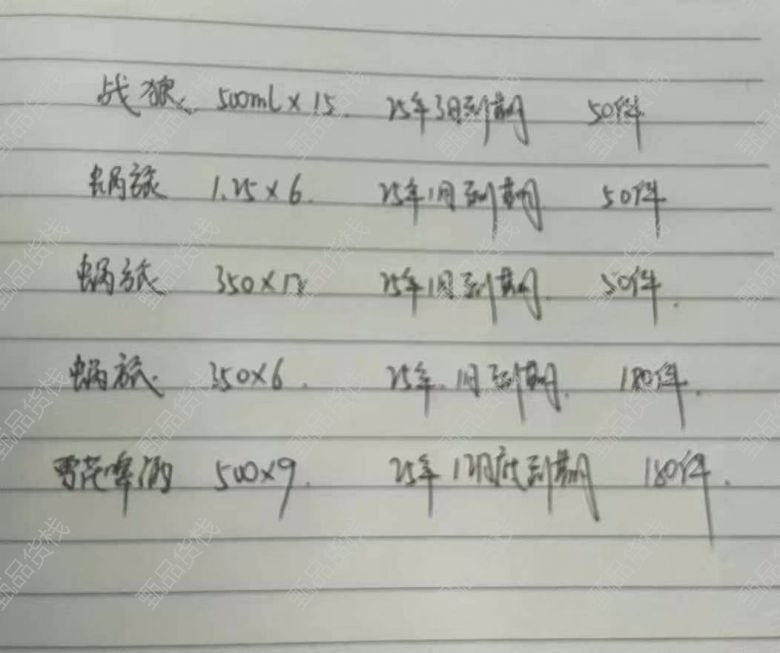 战狼 500ml×15 25年3月到期 50件
蜗旅 1.25×6. 25年1月到期 50件
蜗旅 350×12 25年1月到期. 50件.
蜗旅 350×6. 25年.1月到期. 180件.
雪花啤酒 500×9. 25年12月底到期 180件.
甄品货栈